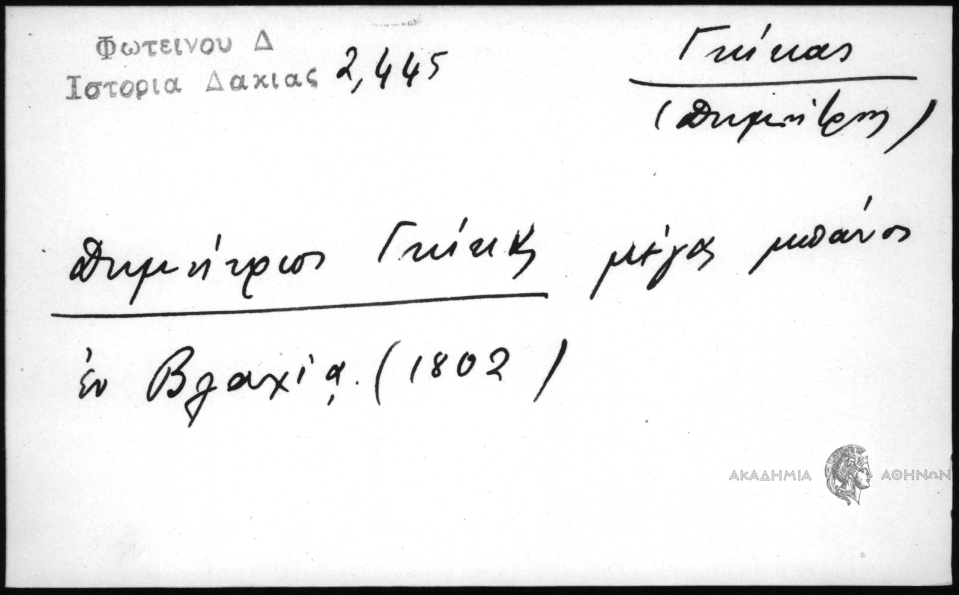 Φωτεινου Δ
Ιστορια Δακιας 2,445
Γκίκας
(Δημήτρης)
Δημήτριος Γκίκας μέγας μπάνος
ἐν Βλαχίᾳ. (1802)
ΑΚΑΔΗΜΙΑ ΑΘΗΝΩΝ